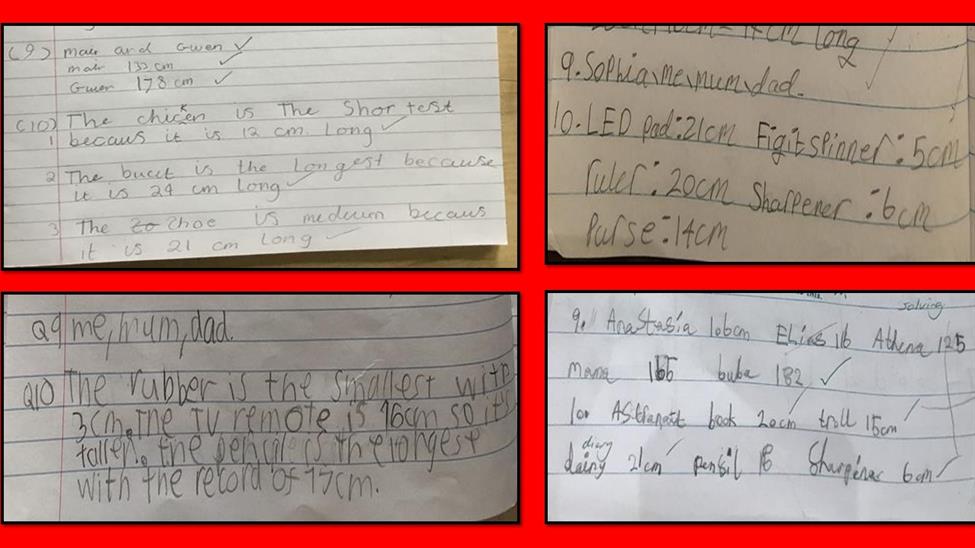 (9) mair and Gwen ✓
mair 133 cm ✓
Gwen 178 cm ✓
(10) The chicken is The Shortest
1 becaus it is 12 cm Long ✓
2 The bucit is the Longest because
it is 24 cm long ✓
3 The Zo Zhoe is medium becaus
it is 21 cm long ✓
14cm long
9. Sophia, me, mum, dad.
10. LED pad: 21cm Figit spinner: 5cm
ruler: 20cm Sharpener: 6cm
Purse: 14cm
Q9 me, mum, dad.
Q10 The rubber is the smallest with
3cm. The TV remote is 16cm so it's
taller. the pencil is the longest
with the record of 17cm.
solving
9. Anastasia 106cm Elias 116 Athena 125
mana 165 buba 182 ✓
10. book 20cm troll 15cm
diary
daing 21cm pensil 18 Sharpener 6cm